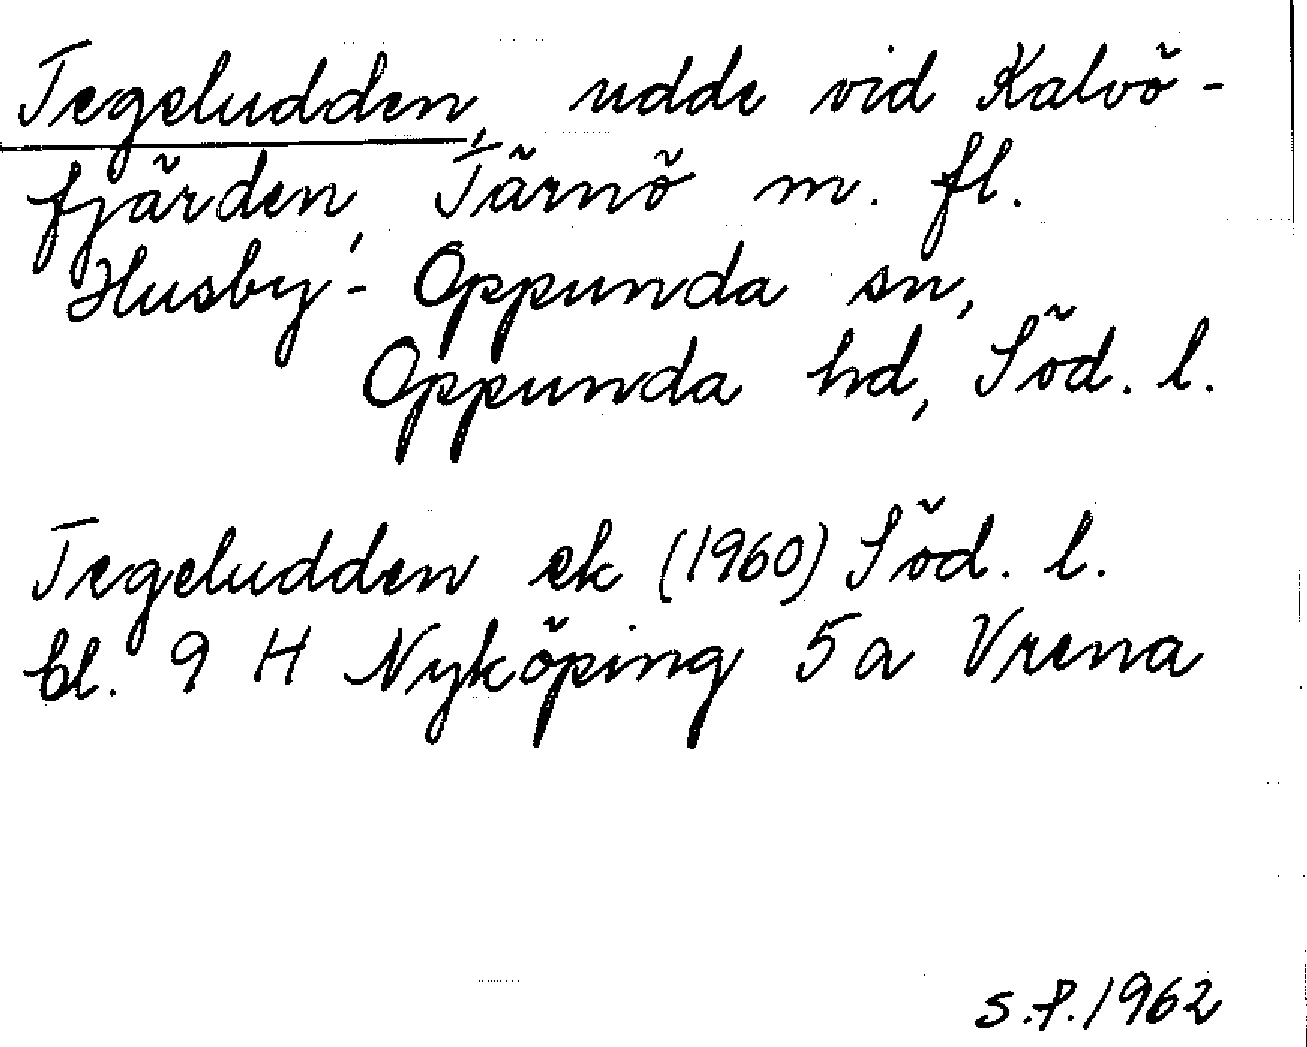 Tegeludden, udde vid Kalvö-
fjärden, Tärnö m. fl.
Husby-Oppunda sn,
Oppunda hd, Söd. l.
Tegeludden ek (1960) Söd. l.
bl. 9 H Nyköping 5a Vrena
S.P. 1962